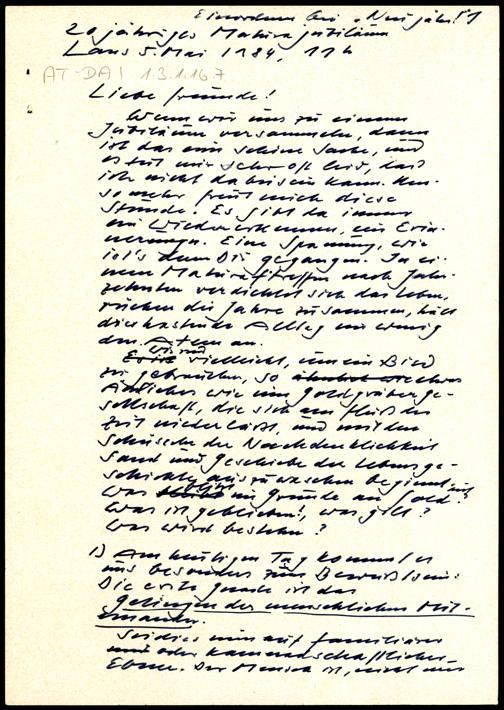 Einordnen bei "Neujahr!" 1
20jähriges Maturajubiläum
Lans 5. Mai 1984, 11h
AT-DAI 1.3.1.167
Liebe Freunde!
Wenn wir uns zu einem
Jubiläum versammeln, dann
ist das eine schöne Sache, und
es tut mir sehr oft leid, daß
ich nicht dabei sein kann. Um-
so mehr freut mich diese
Stunde. Es gibt da immer
ein Wiedererkennen, ein Erin-
nerungen. Eine Spannung, wie
ist's denn Dir gegangen. In ei-
nem Maturatreffen nach Jahr-
zehnten verdichtet sich das Leben,
rücken die Jahre zusammen, hält
die hastende Alltag ein wenig
den Atem an.
Wir sind
vielleicht, um ein Bild
zu gebrauchen, so etwas
Ähnliches wie eine Goldgräberge-
sellschaft, die sich am Fluß der
Zeit niederläßt, und mit den
Schüsseln der Nachdenklichkeit
Sand und Geschiebe der Lebensge-
schichte auszuwaschen beginnt,
Was im Grunde an Gold?
Was ist geblieben, was gilt?
Was wird bestehen?
1) Am heutigen Tag kommt es
uns besonders zum Bewußtsein:
Die erste Gnade ist das
Gelingen des menschlichen Mit-
einander.
Sei dies nun auf familiärer
oder kameradschaftlicher
Ebene. Der Mensch ist, nicht nur